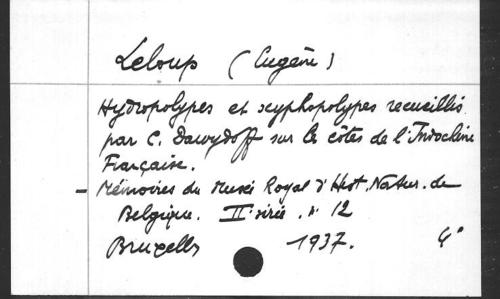 Leloup (Eugène)
Hydropolypes et scyphopolypes recueillis
par C. Dawydoff sur les côtes de l'Indochine
Française.
- Mémoires du Musée Royal d'Hist. Natur. de
Belgique. II série. n° 12
Bruxelles 1937. 4°